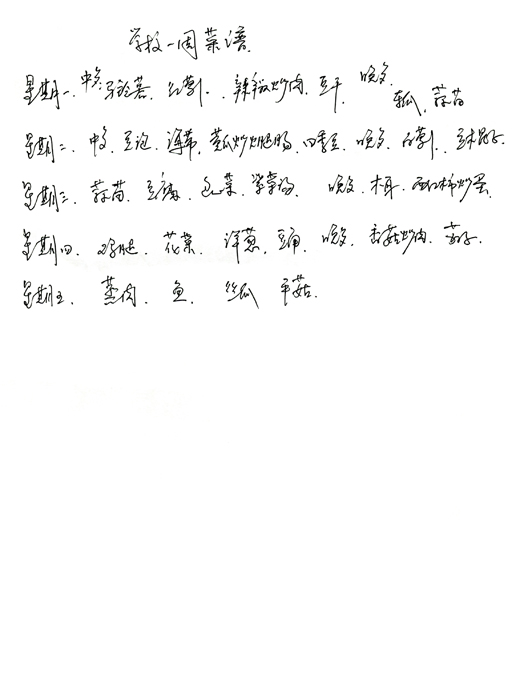 学校一周菜谱
星期一. 中餐. 马铃薯. 红萝卜. 辣椒炒肉. 豆干. 晚餐.
瓠瓜. 蒜苗
星期二. 中餐. 豆泡. 海带. 黄瓜炒火腿肠. 四季豆. 晚餐. 白萝卜.
星期三. 蒜苗. 豆腐. 包菜. 紫菜汤. 晚餐. 木耳. 西红柿炒蛋.
星期四. 鸡腿. 花菜. 洋葱. 晚餐. 香菇炒肉. 茄子.
星期五. 蒸肉. 鱼. 丝瓜 平菇.